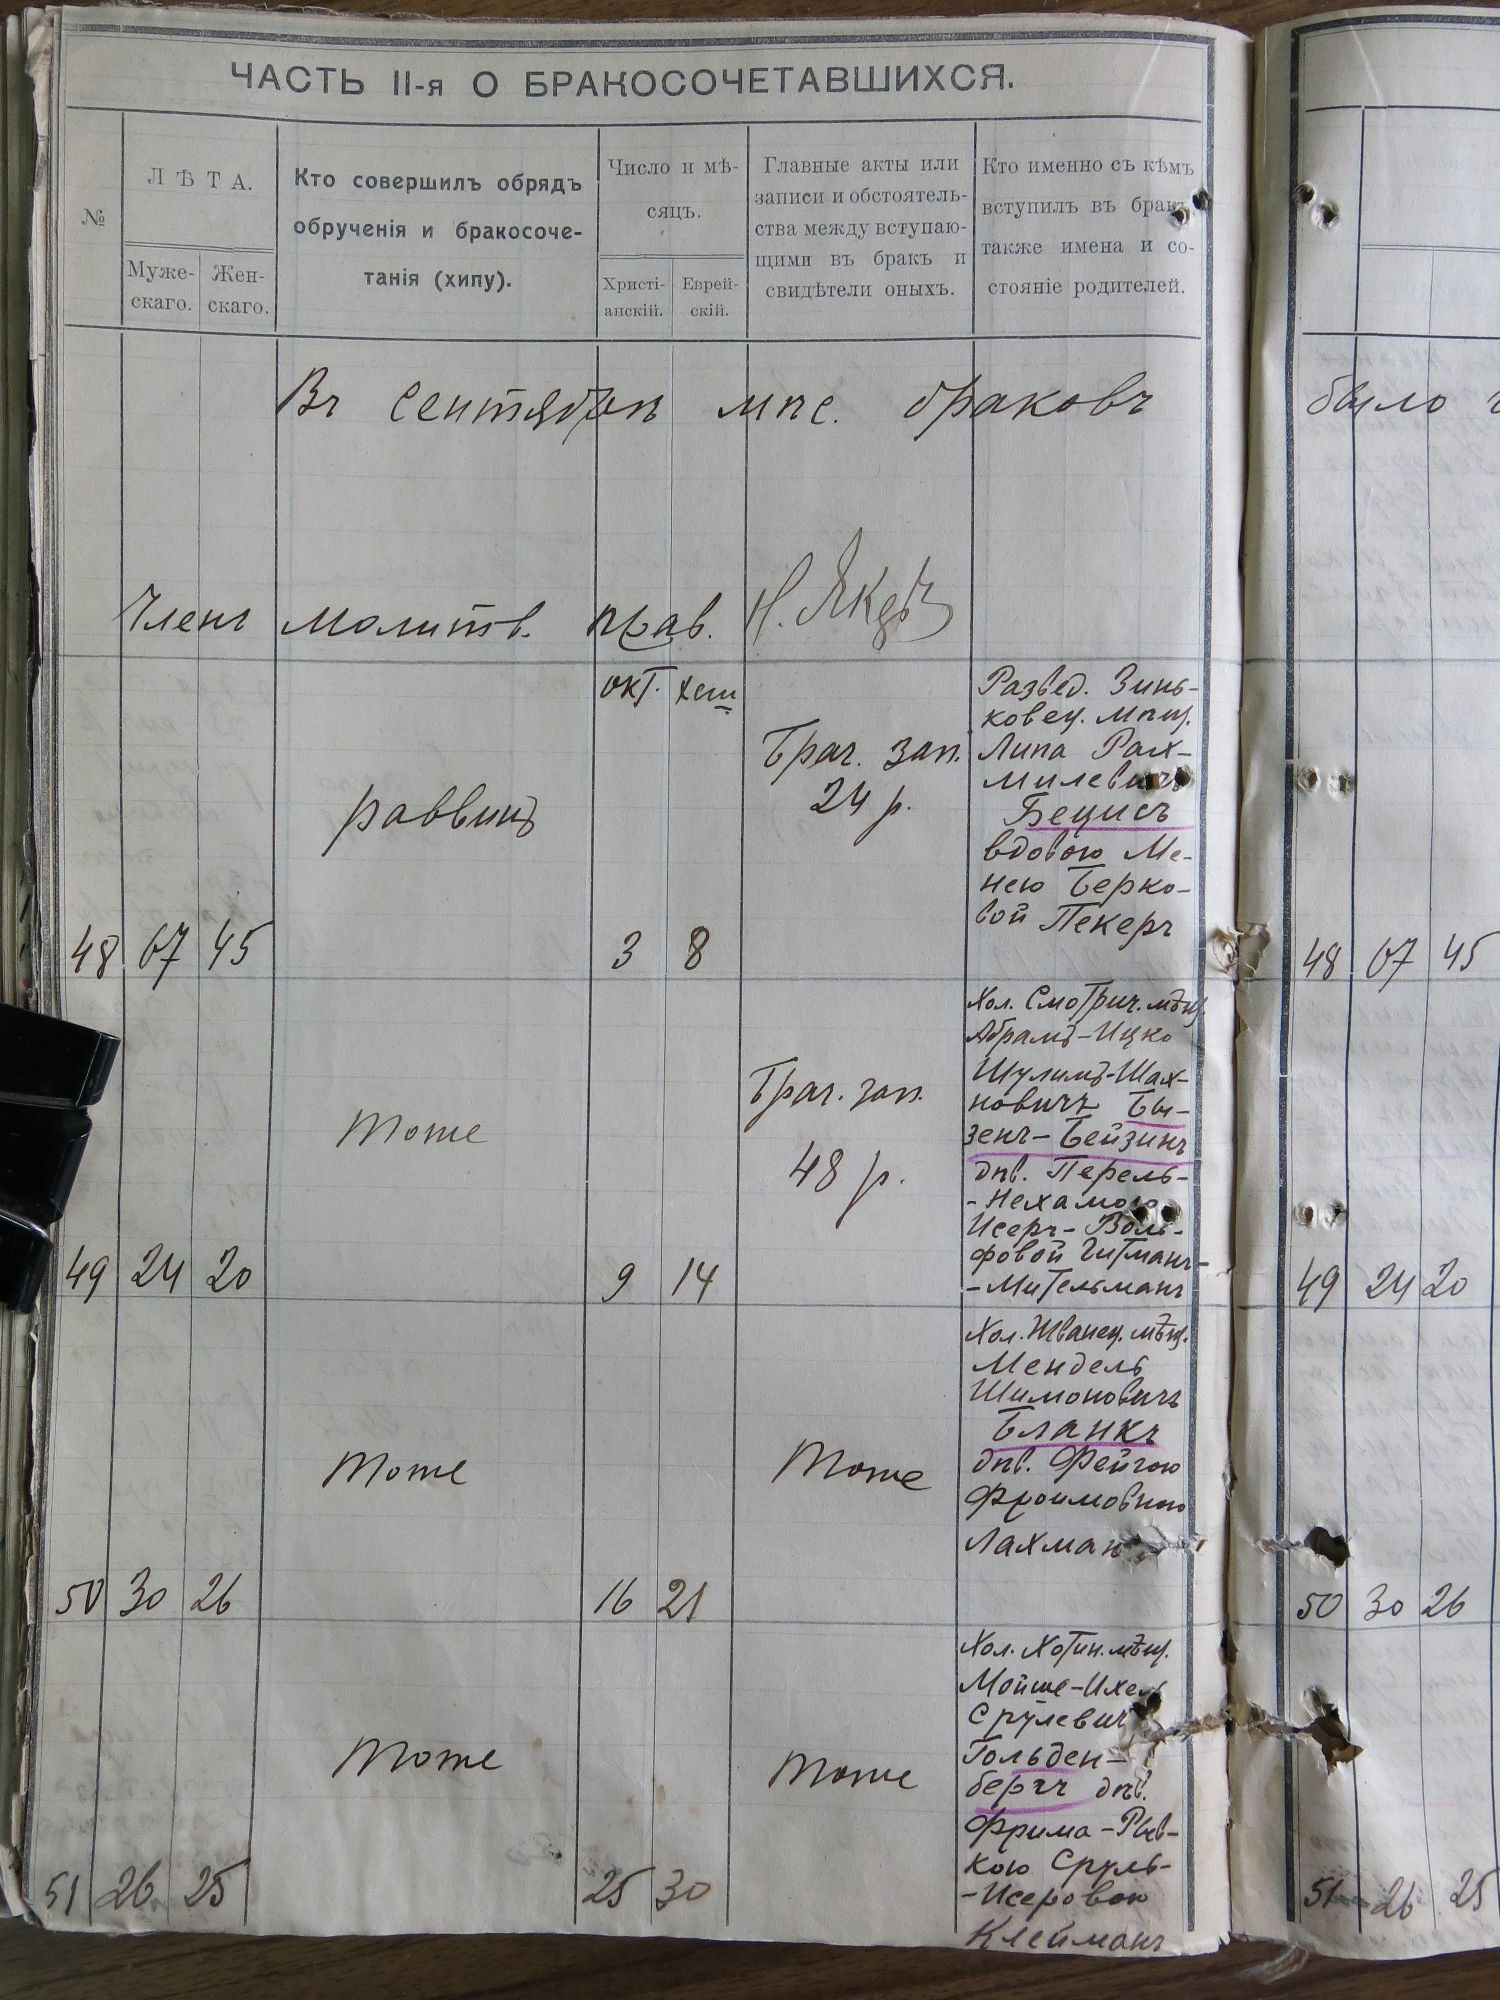 ЧАСТЬ II-я О БРАКОСОЧЕТАВШИХСЯ.
№
ЛѢТА.
Муже-
скаго.
Жен-
скаго.
Кто совершилъ обрядъ
обрученія и бракосоче-
танія (хипу).
Число и мѣ-
сяцъ.
Христі-
анскій.
Еврей-
скій.
Главные акты или
записи и обстоятель-
ства между вступаю-
щими въ бракъ и
свидѣтели оныхъ.
Кто именно съ кѣмъ
вступилъ въ бракъ,
также имена и со-
стояніе родителей.
Въ Сентябрѣ мѣс. браковъ
было
Членъ молитв. прав.
окт. хеш
48 67 45
раввинъ
3 8
Брач. зап.
24 р.
Развед. Зинь-
ковец. мѣщ.
Липа Рах-
милевичъ
Бецисъ
вдовою Ме-
нею Берко-
вой Пекеръ
48 67 45
49 24 20
тоже
9 14
Брач. зап.
48 р.
Хол. Смотрич. мѣщ.
Абрамъ-Ицко
Шулимъ-Шах-
новичъ Бы-
зенъ-Бейзинъ
дѣв. Перель-
-Нехамою
Исеръ-Воль-
фовой Гитманъ-
-Мительманъ
49 24 20
50 30 26
тоже
16 21
тоже
Хол. Жванец. мѣщ.
Мендель
Шимоновичъ
Бланкъ
дѣв. Фейгою
Фроимовною
Лахман
50 30 26
51 26 25
тоже
25 30
тоже
Хол. Хотин. мѣщ.
Мойше-Ихель
Срулевичъ
Гольден-
бергъ дѣв.
Фрима-Рыв-
кою Сруль-
-Исеровою
Клейманъ
51 26 25